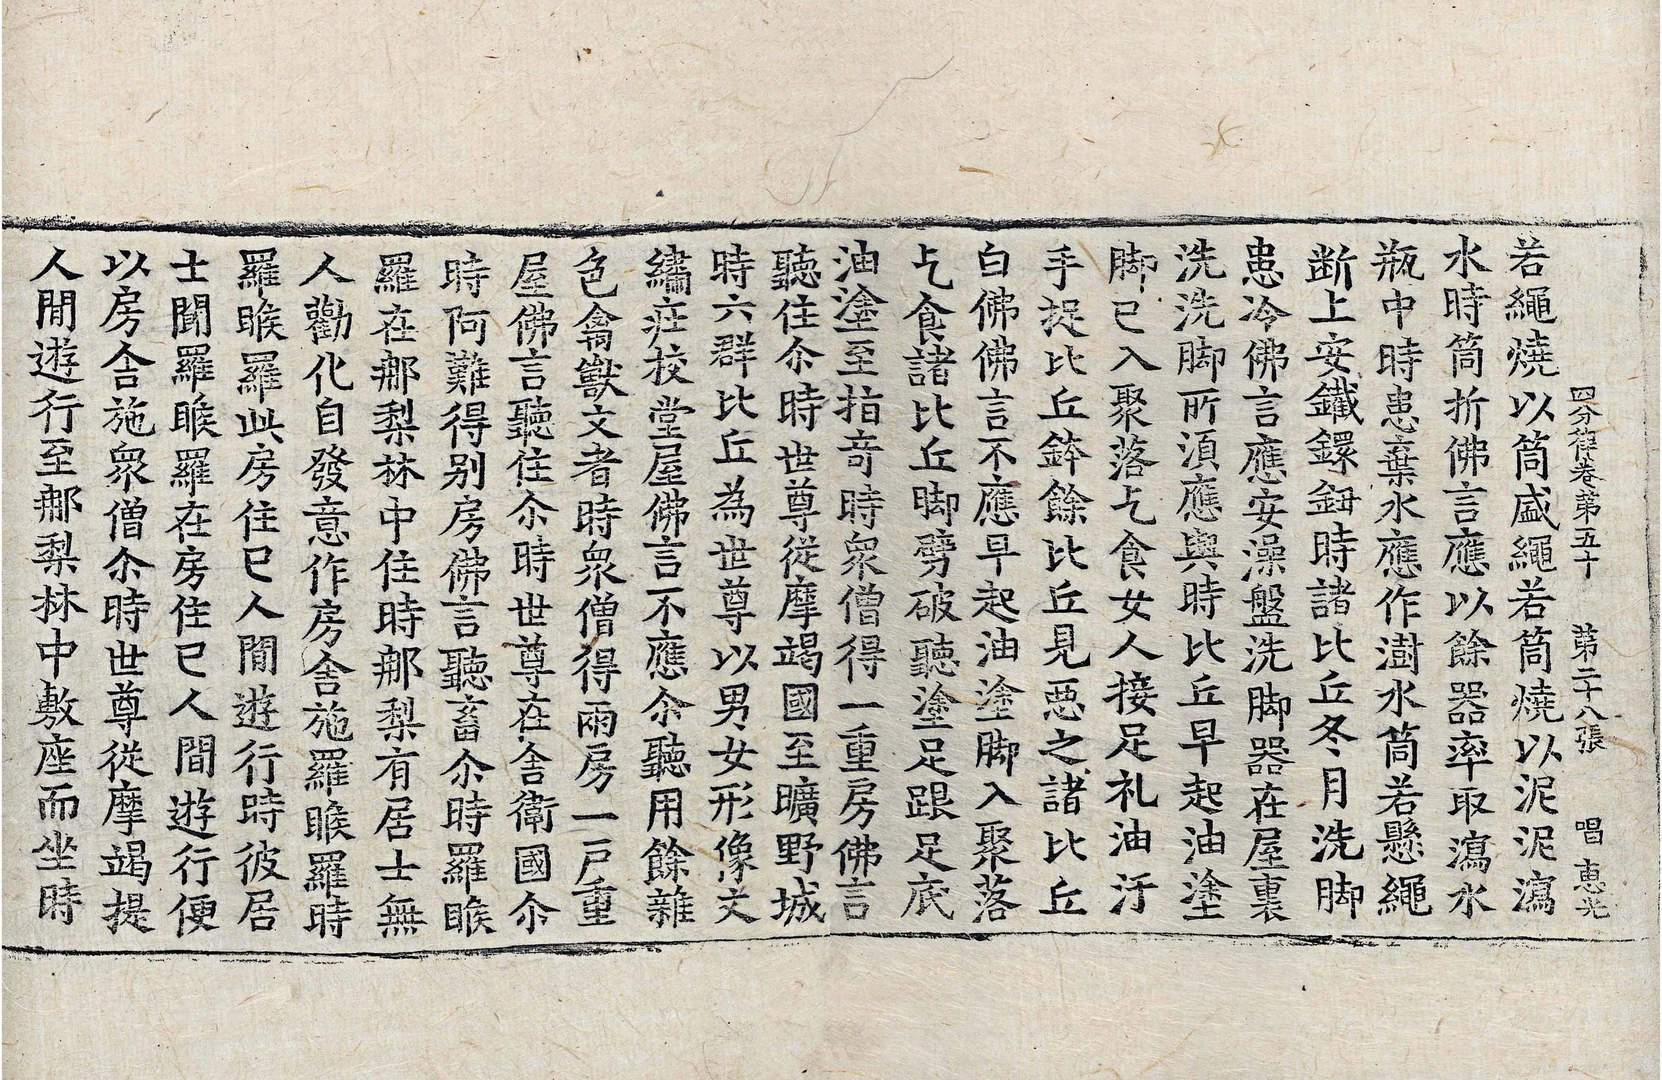 四分律卷第五十　第二十八張　唱　惠光
若繩燒以筒盛繩若筒燒以泥泥瀉
水時筒折佛言應以餘器率取瀉水
瓶中時患棄水應作澍水筒若懸繩
断上安鐵鏍鈕時諸比丘冬月洗脚
患冷佛言應安澡盤洗脚器在屋裏
洗洗脚所須應與時比丘早起油塗
脚已入聚落乞食女人接足礼油汙
手捉比丘鉢餘比丘見惡之諸比丘
白佛佛言不應早起油塗脚入聚落
乞食諸比丘脚劈破聽塗足跟足底
油塗至指奇時衆僧得一重房佛言
聽住尒時世尊從摩竭國至曠野城
時六群比丘為世尊以男女形像文
繡莊校堂屋佛言不應尒聽用餘雜
色禽獸文者時衆僧得兩房一戶重
屋佛言聽住尒時世尊在舍衛國尒
時阿難得別房佛言聽畜尒時羅睺
羅在郍梨林中住時郍梨有居士無
人勸化自發意作房舍施羅睺羅時
羅睺羅此房住已人閒遊行時彼居
士聞羅睺羅在房住已人間遊行便
以房舍施衆僧尒時世尊從摩竭提
人閒遊行至郍梨林中敷座而坐時